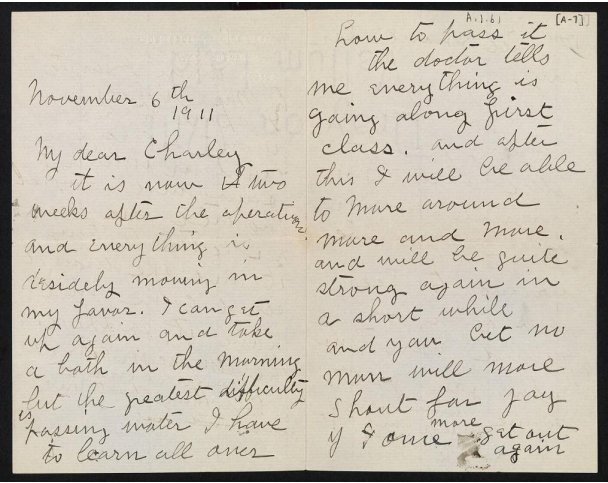 November 6th
1911
My dear Charley
it is now two
weeks after the operation
and everything is
desidely moving in
my favor. I can get
up again and take
a bath in the morning
but the greatest difficulty
is passing water I have
to learn all over
A.1.61
[A-7]
how to pass it
the doctor tells
me everything is
going along first
class. and after
this I will be able
to move around
more and more.
and will be quite
strong again in
a short while
and you bet no
man will more
shout for joy
if I once more get out
again